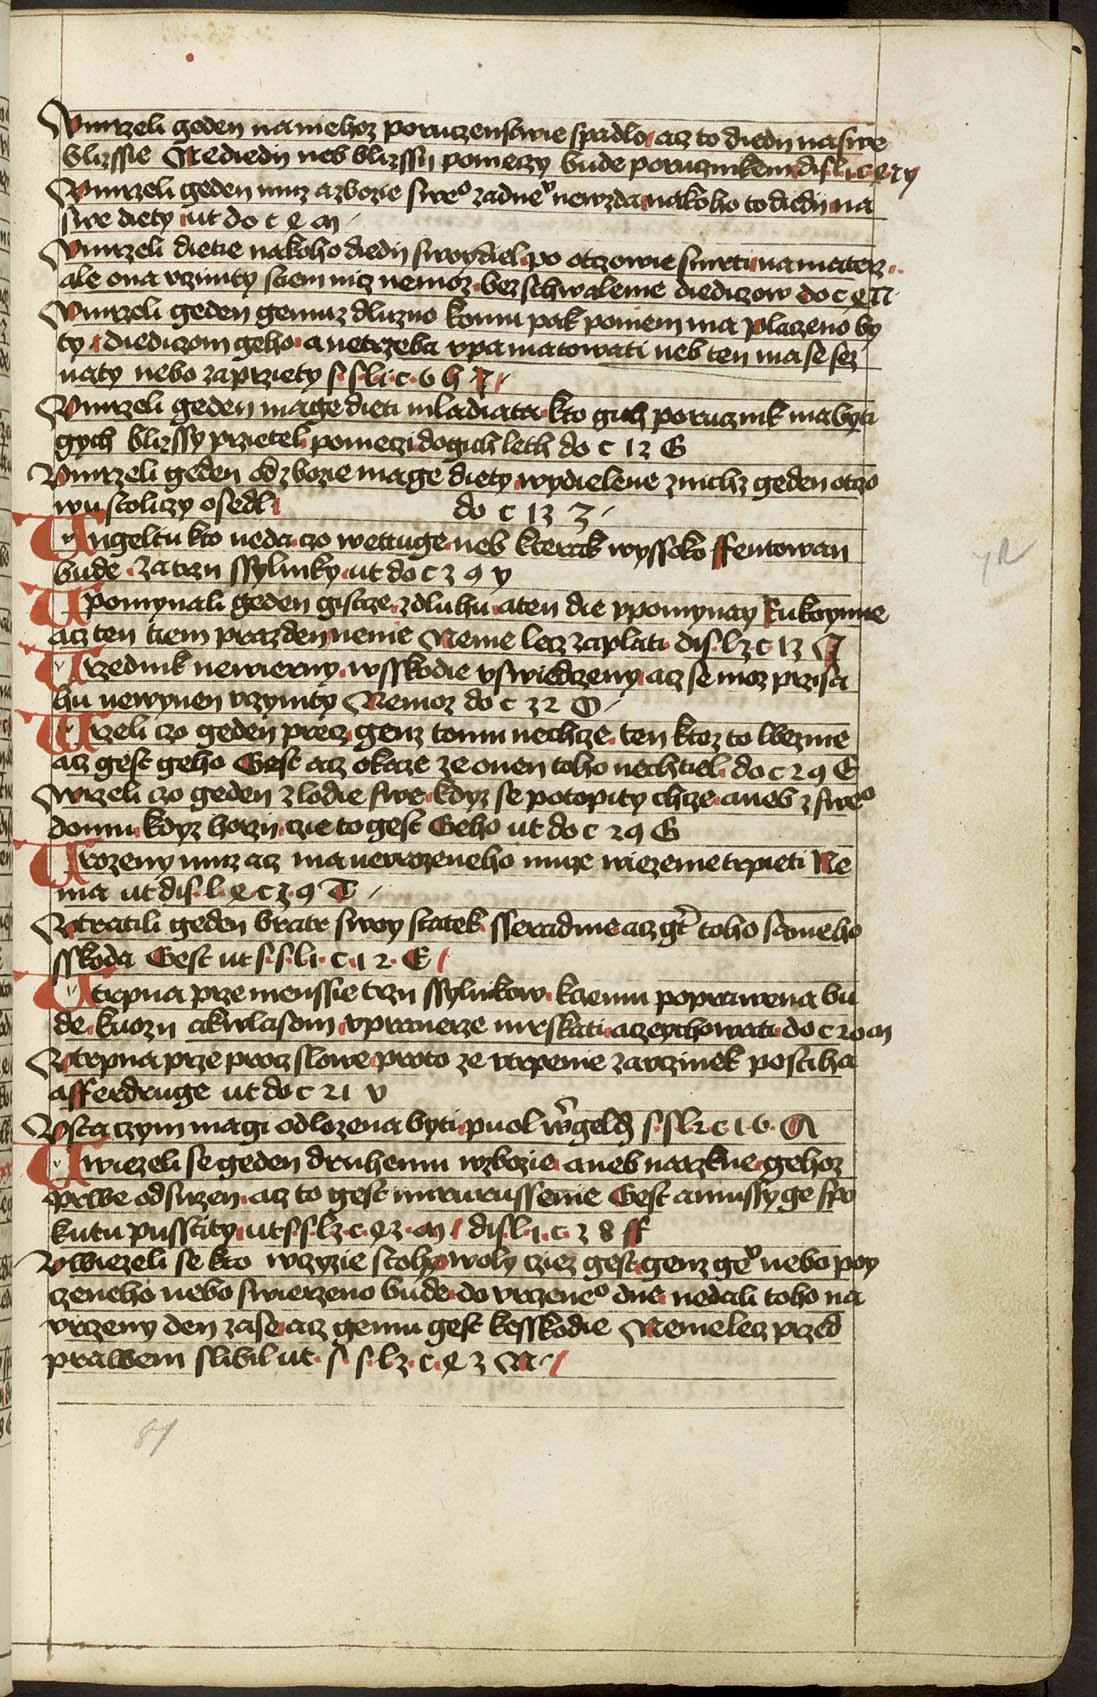 Vmrzeli geden na niehoz poruczenstwie spadlo acz to diedy na swe
blizssie Nediedy neb blizssy pomeczy bude porucznikem dis l i c
Vmrzeli geden muz a zbozie swe° zadne° newzda na koho to diedy na
swe diety ut do c e m
Vmrzeli dietie na koho diedy swoy diel po otczowie smrti na materz
ale ona vczinity s tiem nicz nemoz bez schwalenie diediczow do c e n
Vmrzeli geden gemuz dluzno komu pak po niem ma placzeno by
ty diediczom geho a netrzeba vpamatowati neb ten ma se sez
naty nebo zaprziety s s l i c 6 h
Vmrzeli geden mage dieti mladiata kto gich porucznik ma byti
gych blizssy przietel po meczi do gich leth do c 13 G
Vmrzeli geden od zbozie mage diety wydielene z nichz geden otczo
wu stoliczy osedl do c 13 z
Vngeltu kto neda czo wettuge neb kterak wyssoko ssentowan
bude za trzy ssylinky ut do c 3 9 y
Vpomynali geden gistcze z dluhu a ten die vpomynay Rukoymie
acz ten tiem prazden nenie Nenie lecz zaplati dis l 2 c 13
Vrzednik newierny w sskodie vswiedczeny acz se moz przisa
hu newynen vczynity Nemoz do c 3 2 O
Vrzeli czo geden precz genz tomu nechcze ten ktoz to wezme
acz gest geho Gest acz okaze ze onen toho nechtiel do c 2 9 E
Vwrzeli czo geden z lodie swe kdyz se potopity chcze aneb z swe°
domu kdyz horzy czie to gest Geho ut do c 2 9 G
Vrozeny muz acz ma nevrozeneho muze wiezenie trpieti Ne
ma ut dis l e c 3 9 T
Vtratili geden bratr swoy statek sseradnie acz gt toho sameho
sskoda Gest ut s s l i c 1 2 E
Vtrpna prze menssie trzy ssylinkow kaemu poprawena bu
de k nozy akwlasom vprawerze mrskati a czychowati do c 20 m
Vtrpna prze procz slowe proto ze vtrpenie za vczinek postiha
a sserdruge ut do c 21 v
Vsta czym magi odlozena byti puol wergeld s s l 2 c 1 6 A
Vwiezeli se geden druhemu w zbozie aneb narzkne gehoz
prwe odsuzen acz to gest mirurussenie Gest a mussy ge spo
kutu pusstity ut s s l 3 c e 2 m dis l 1 c 3 8 ff
Vwiezeli se kto w czyzie stoho woly cziez gest genz ge° nebo poy
czeneho nebo swierzeno bude do vrczene° dne nedali toho na
vrczeny den zase acz gemu gest k sskodie Nenie lecz przed
prawem slibil ut s s l 3 c e 3 N
81